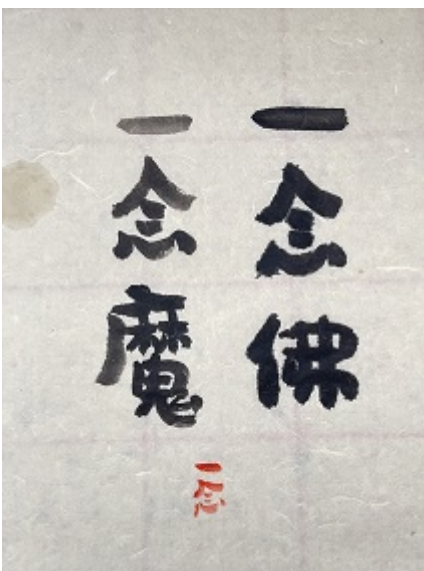 一念佛
一念魔
一念